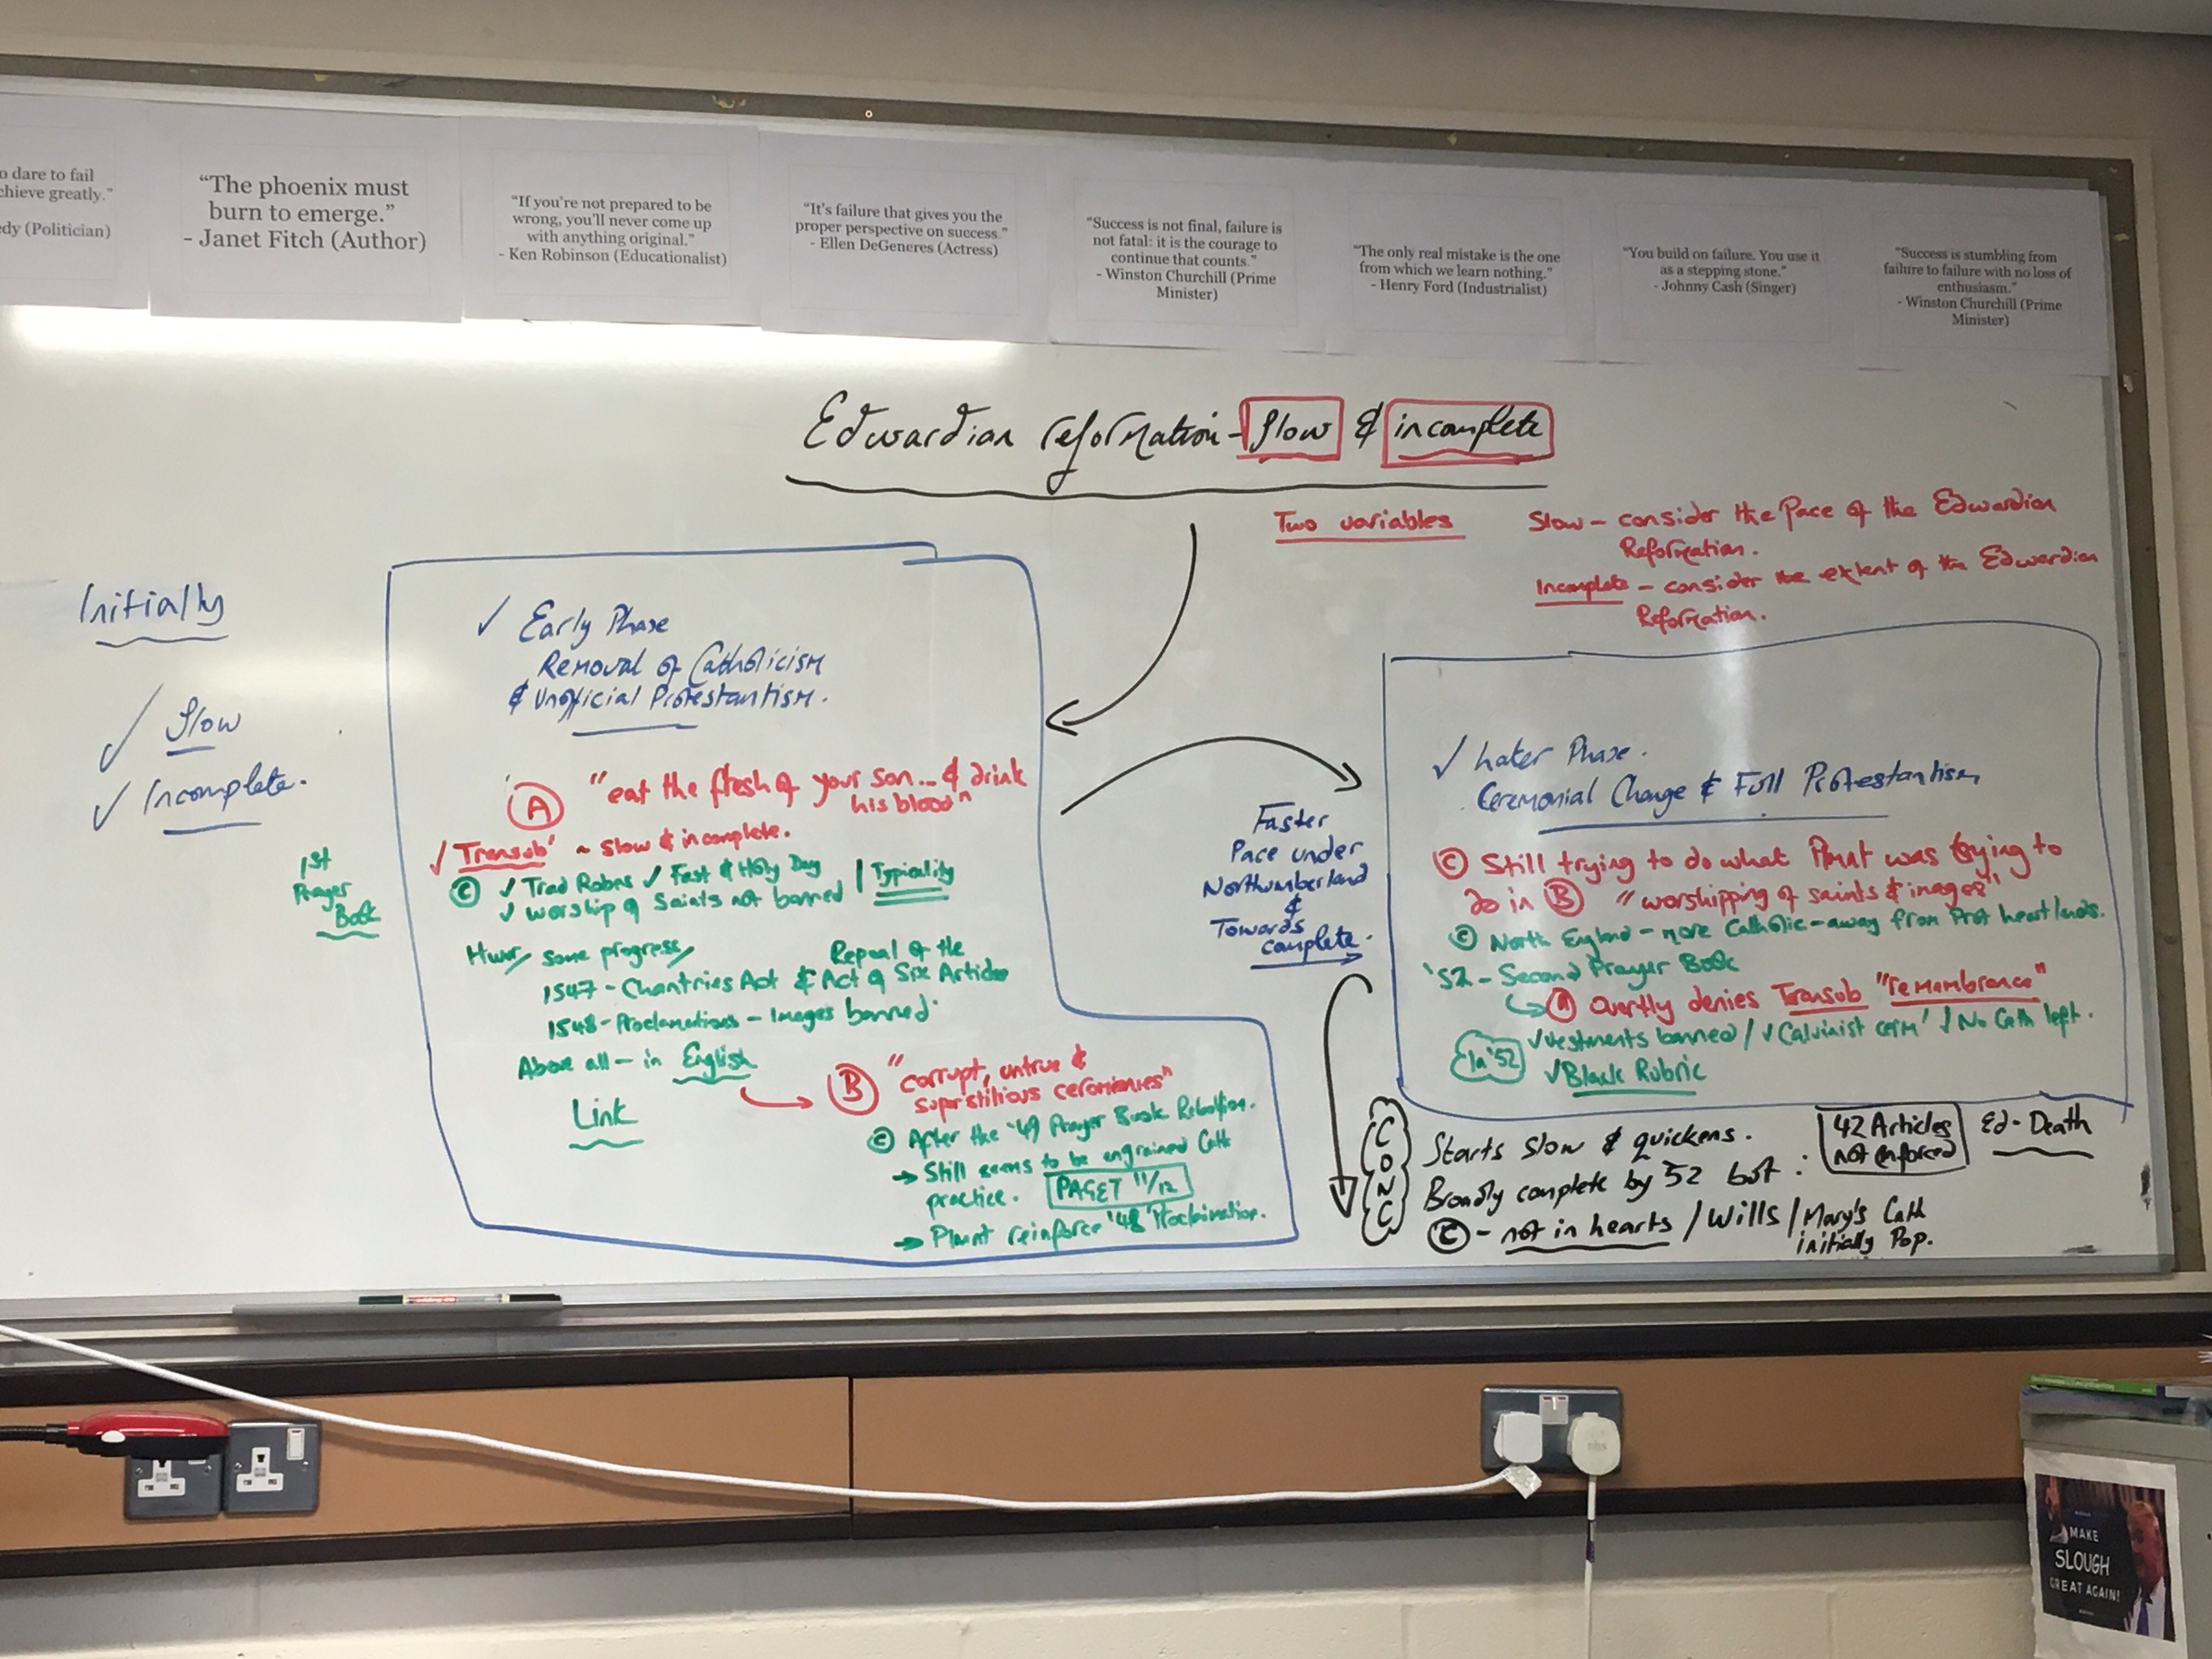 o dare to fail
chieve greatly."
edy (Politician)
"The phoenix must
burn to emerge."
- Janet Fitch (Author)
"If you're not prepared to be
wrong, you'll never come up
with anything original."
- Ken Robinson (Educationalist)
"It's failure that gives you the
proper perspective on success."
- Ellen DeGeneres (Actress)
"Success is not final, failure is
not fatal: it is the courage to
continue that counts."
- Winston Churchill (Prime
Minister)
"The only real mistake is the one
from which we learn nothing."
- Henry Ford (Industrialist)
"You build on failure. You use it
as a stepping stone."
- Johnny Cash (Singer)
"Success is stumbling from
failure to failure with no loss of
enthusiasm."
- Winston Churchill (Prime
Minister)
Edwardian reformation - slow & incomplete
Two variables
Slow - consider the Pace of the Edwardian
Reformation.
Incomplete - consider the extent of the Edwardian
Reformation.
Initially
✓ Slow
✓ Incomplete.
1st
Prayer
Book
✓ Early Phase
Removal of Catholicism
& Unofficial Protestantism.
A "eat the flesh of your son... & drink
his blood"
✓ Transub' ~ slow & incomplete.
C ✓ Trad Robes ✓ Fast & Holy Day
✓ worship of Saints not banned | Typicality
Hwvr some progress
Repeal of the
1547 - Chantries Act & Act of Six Articles
1548 - Proclamations - Images banned
Above all - in English
Link
B "corrupt, untrue &
superstitious ceremonies"
C After the '49 Prayer Book Rebellion.
→ Still seems to be engrained Cath
practice. PAGET 11/12
→ Plmnt reinforce '48 Proclamation.
Faster
Pace under
Northumberland
&
Towards
complete.
✓ Later Phase.
Ceremonial Change & Full Protestantism
C Still trying to do what Plmnt was trying to
do in B "worshipping of saints & images"
C North England - more Catholic - away from Prot heartlands.
'52 - Second Prayer Book
A overtly denies Transub "remembrance"
In '52 ✓ vestments banned / ✓ Calvinist cerm' ✓ No Cath left.
✓ Black Rubric
CONC
Starts slow & quickens.
Broadly complete by 52 but :
42 Articles
not enforced
Ed - Death
C - not in hearts / Wills / Mary's Cath
initially Pop.
MAKE
SLOUGH
GREAT AGAIN!